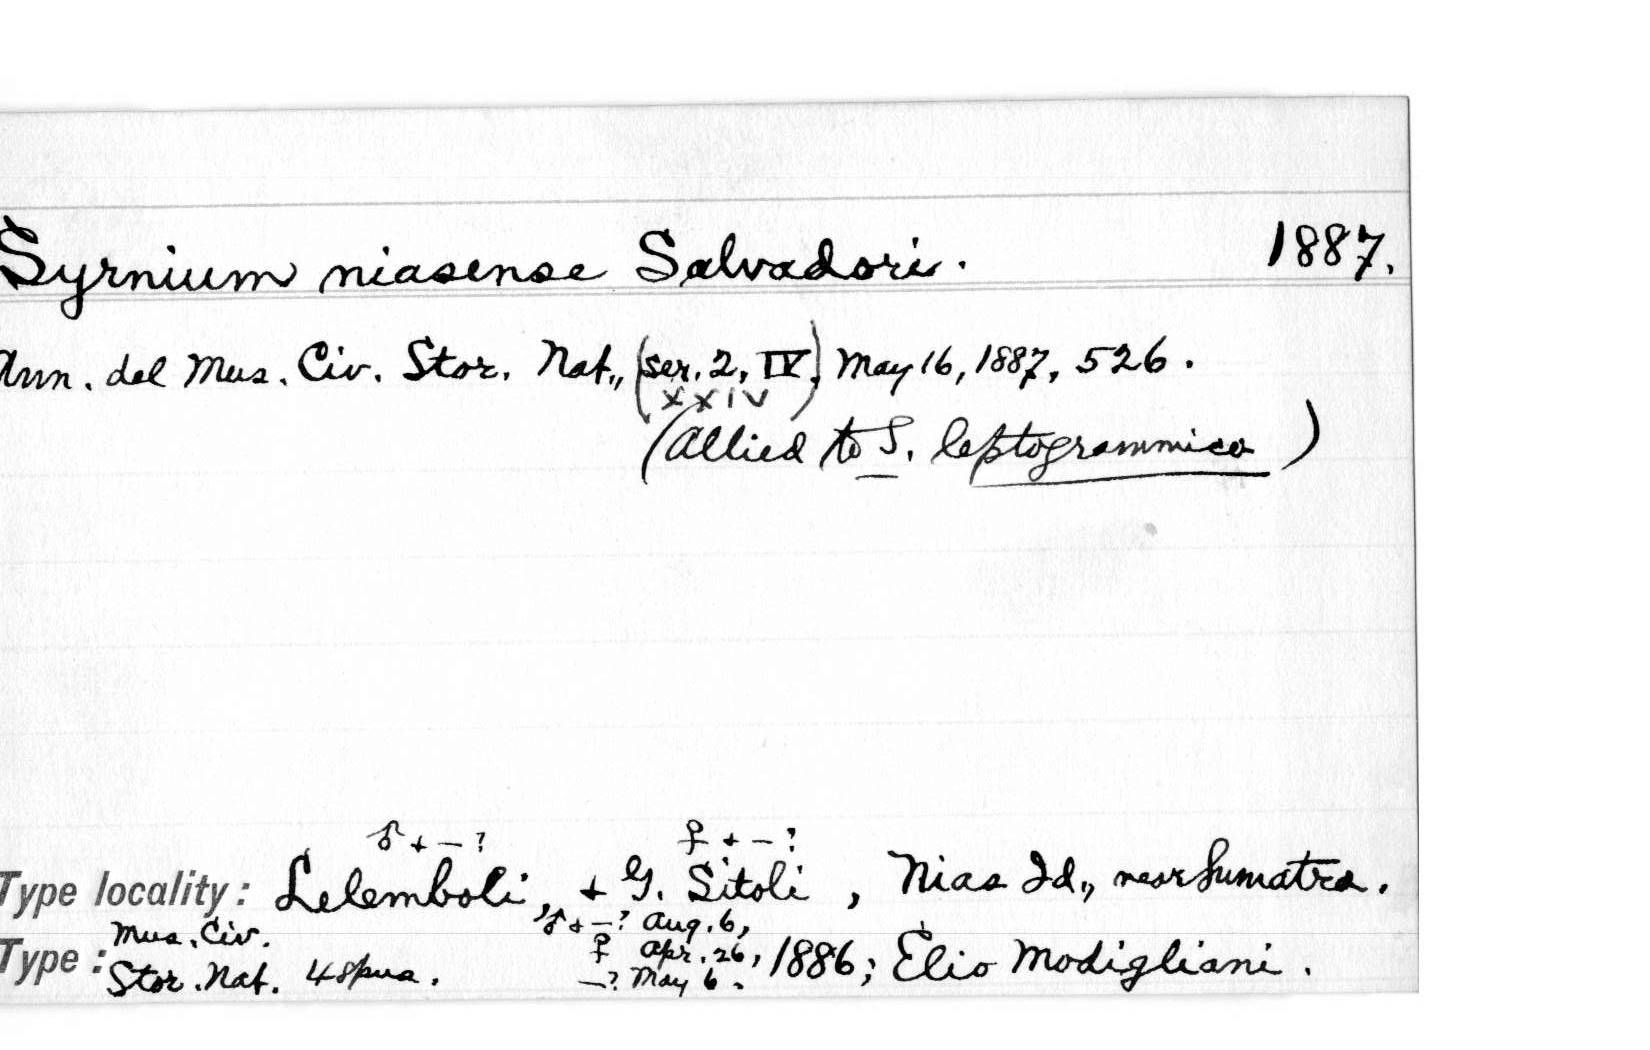 Syrnium niasense Salvadori. 1887.
Ann. del Mus. Civ. Stor. Nat., (ser. 2, IV), May 16, 1887, 526.
XXIV
(Allied to S. leptogrammica)
♂ + — ? ♀ + — ?
Type locality: Lelemboli, + G. Sitoli, Nias Id., near Sumatra.
♂ + — ? Aug. 6,
Type: Mus. Civ. ♀ Apr. 26, 1886; Elio Modigliani.
Stor. Nat. 4 spms. — ? May 6.